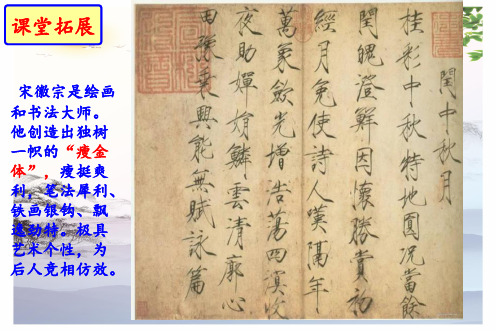 课堂拓展
宋徽宗是绘画
和书法大师。
他创造出独树
一帜的“瘦金
体”，瘦挺爽
利，笔法犀利、
铁画银钩、飘
逸劲特。极具
艺术个性，为
后人竞相仿效。
閏中秋月
桂彩中秋特地圓況當餘
閏魄澄鮮因懷勝賞初
經月免使詩人嘆隔年
萬象斂光增浩蕩四溟收
夜助嬋娟鱗雲清廓心
田豫乘興能無賦詠篇